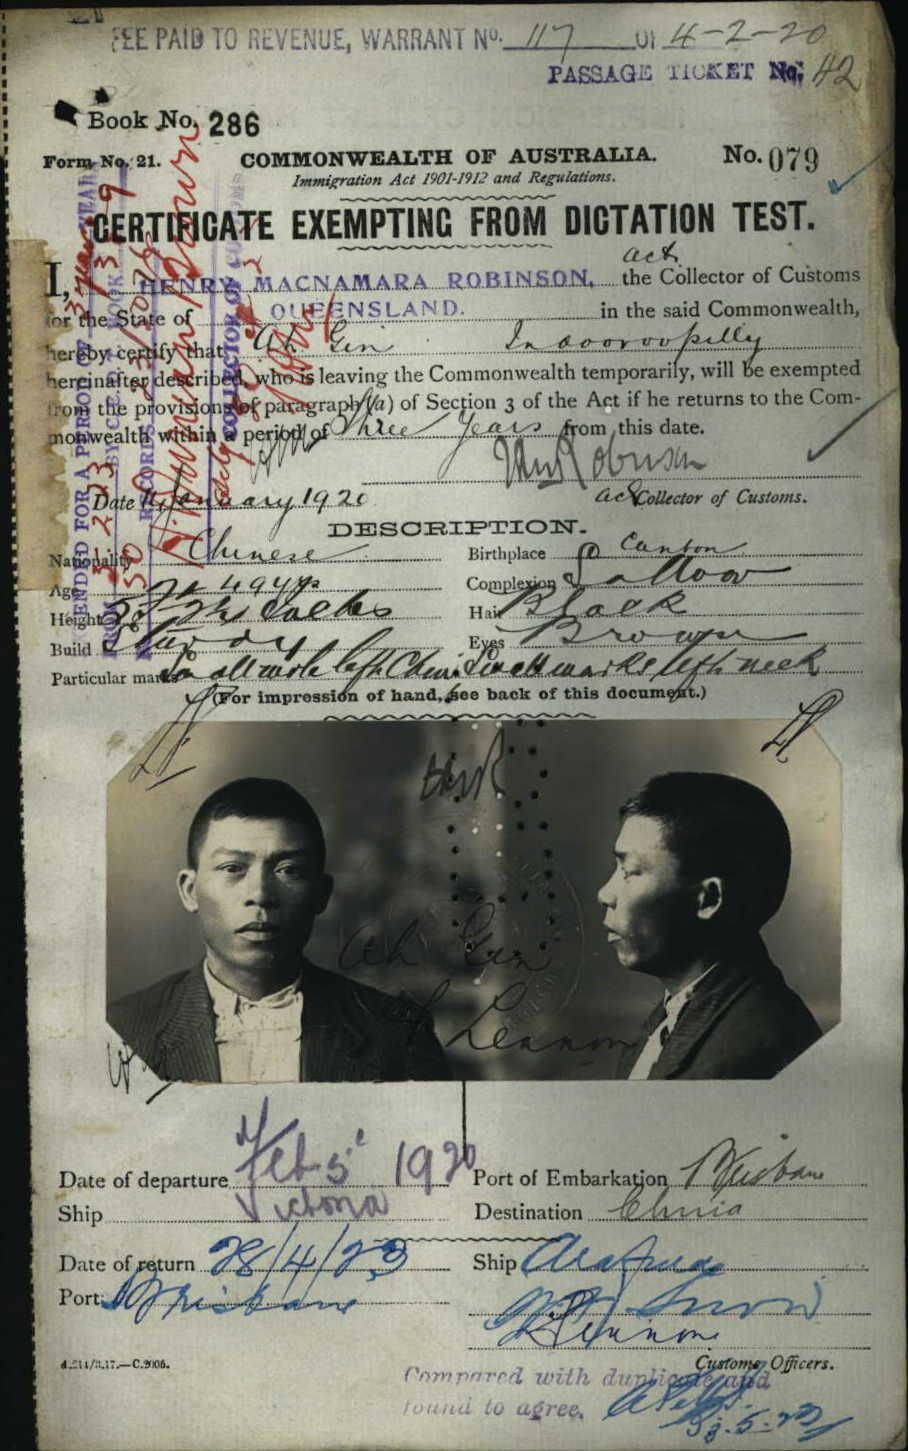 FEE PAID TO REVENUE, WARRANT No. 117 OF 4-2-20
PASSAGE TICKET No. 42
Book No. 286
Form No. 21.
COMMONWEALTH OF AUSTRALIA.
No. 079
Immigration Act 1901-1912 and Regulations.
CERTIFICATE EXEMPTING FROM DICTATION TEST.
act
I, HENRY MACNAMARA ROBINSON, the Collector of Customs
for the State of QUEENSLAND. in the said Commonwealth,
hereby certify that Ah Gin Indooroopilly
hereinafter described, who is leaving the Commonwealth temporarily, will be exempted
from the provisions of paragraph (a) of Section 3 of the Act if he returns to the Com-
monwealth within a period of Three Years from this date.
Date January 1920
Collector of Customs.
DESCRIPTION.
Nationality Chinese
Birthplace Canton
Age 49 yrs
Complexion Sallow
Height
Hair Black
Build Sturdy
Eyes Brown
Particular marks Small mole left Chin Small marks left neck
(For impression of hand, see back of this document.)
HMR
Ah Gin
Lennon
Date of departure Feb 5 1920
Port of Embarkation Brisbane
Ship Victoria
Destination China
Date of return 28/4/23
Ship Arafura
Port Brisbane
Lennon
Customs Officers.
Compared with duplicate and
found to agree.